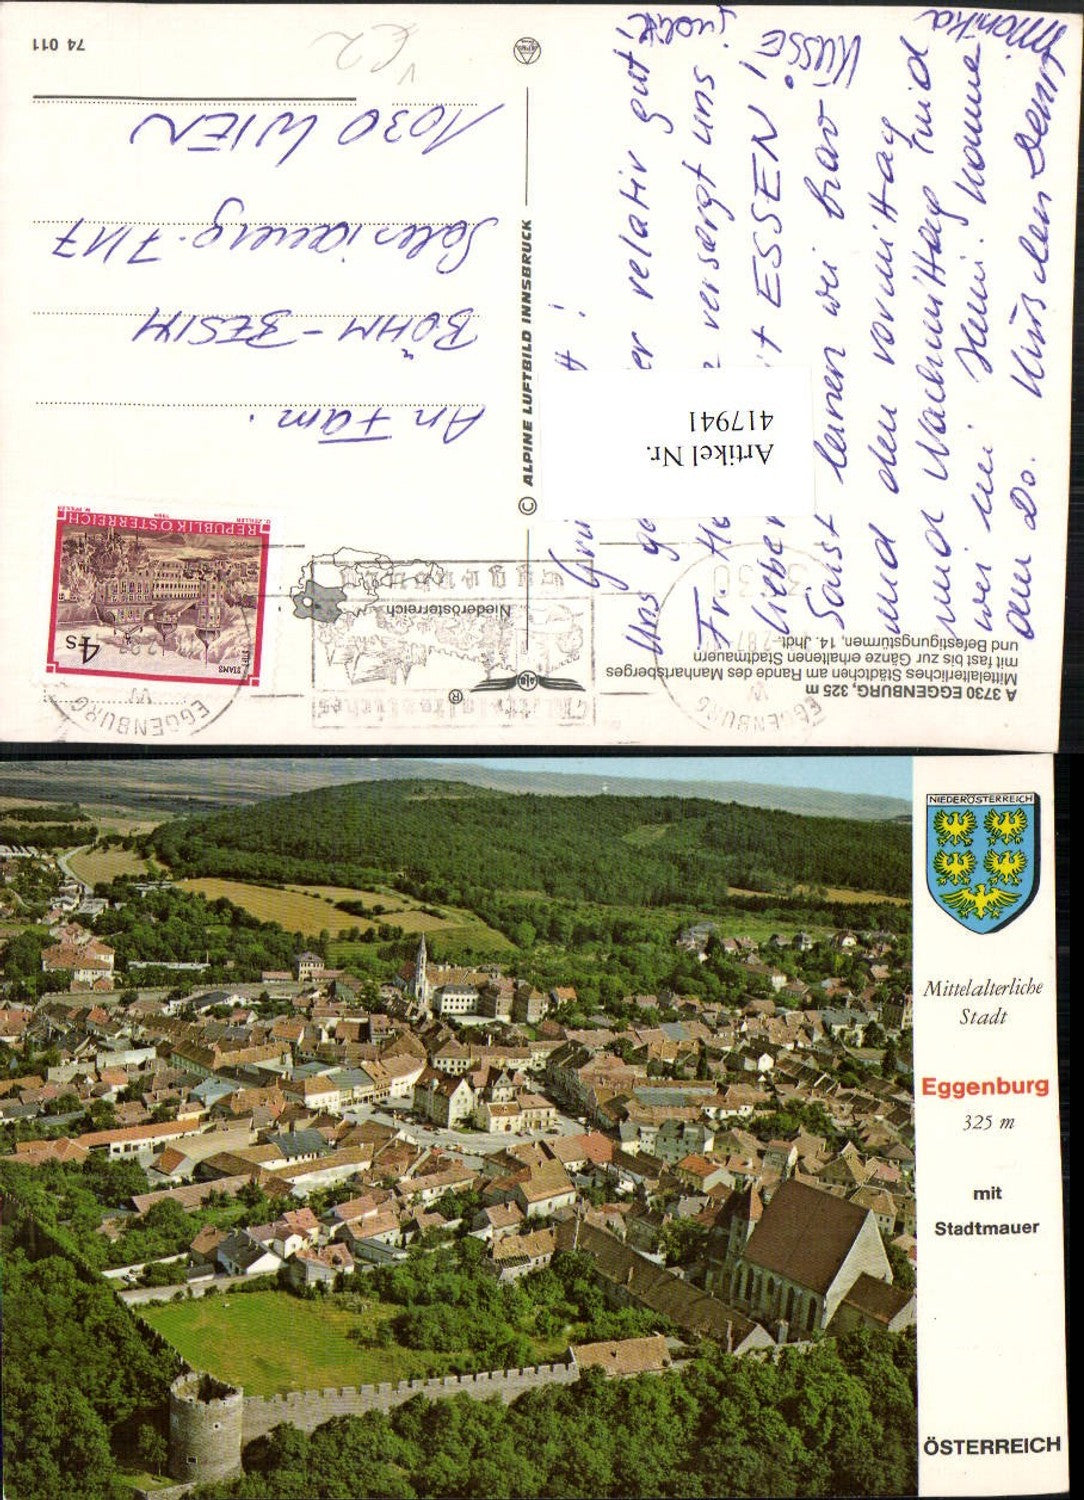 74 011
An Fam.
BÖHM - BESIM
Salesianerg. 7/17
1030 WIEN
© ALPINE LUFTBILD INNSBRUCK
REPUBLIK ÖSTERREICH
STIFT STAMS
4 S
EGGENBURG
Mittelalterliches
Niederösterreich
®
EGGENBURG
3730
A 3730 EGGENBURG, 325 m
Mittelalterliches Städtchen am Rande des Manhartsberges
mit fast bis zur Gänze erhaltenen Stadtmauern
und Befestigungstürmen, 14. Jhdt.
Artikel Nr.
417941
Uns relativ gut,
Fr. versorgt uns
lieber ESSEN!
Sonst lernen wir brav
und den Vormittag
und Nachmittag sind
wir bei Hanni. Komme
am Do. Küsschen Senta
Küsse
Monika
NIEDERÖSTERREICH
Mittelalterliche
Stadt
Eggenburg
325 m
mit
Stadtmauer
ÖSTERREICH